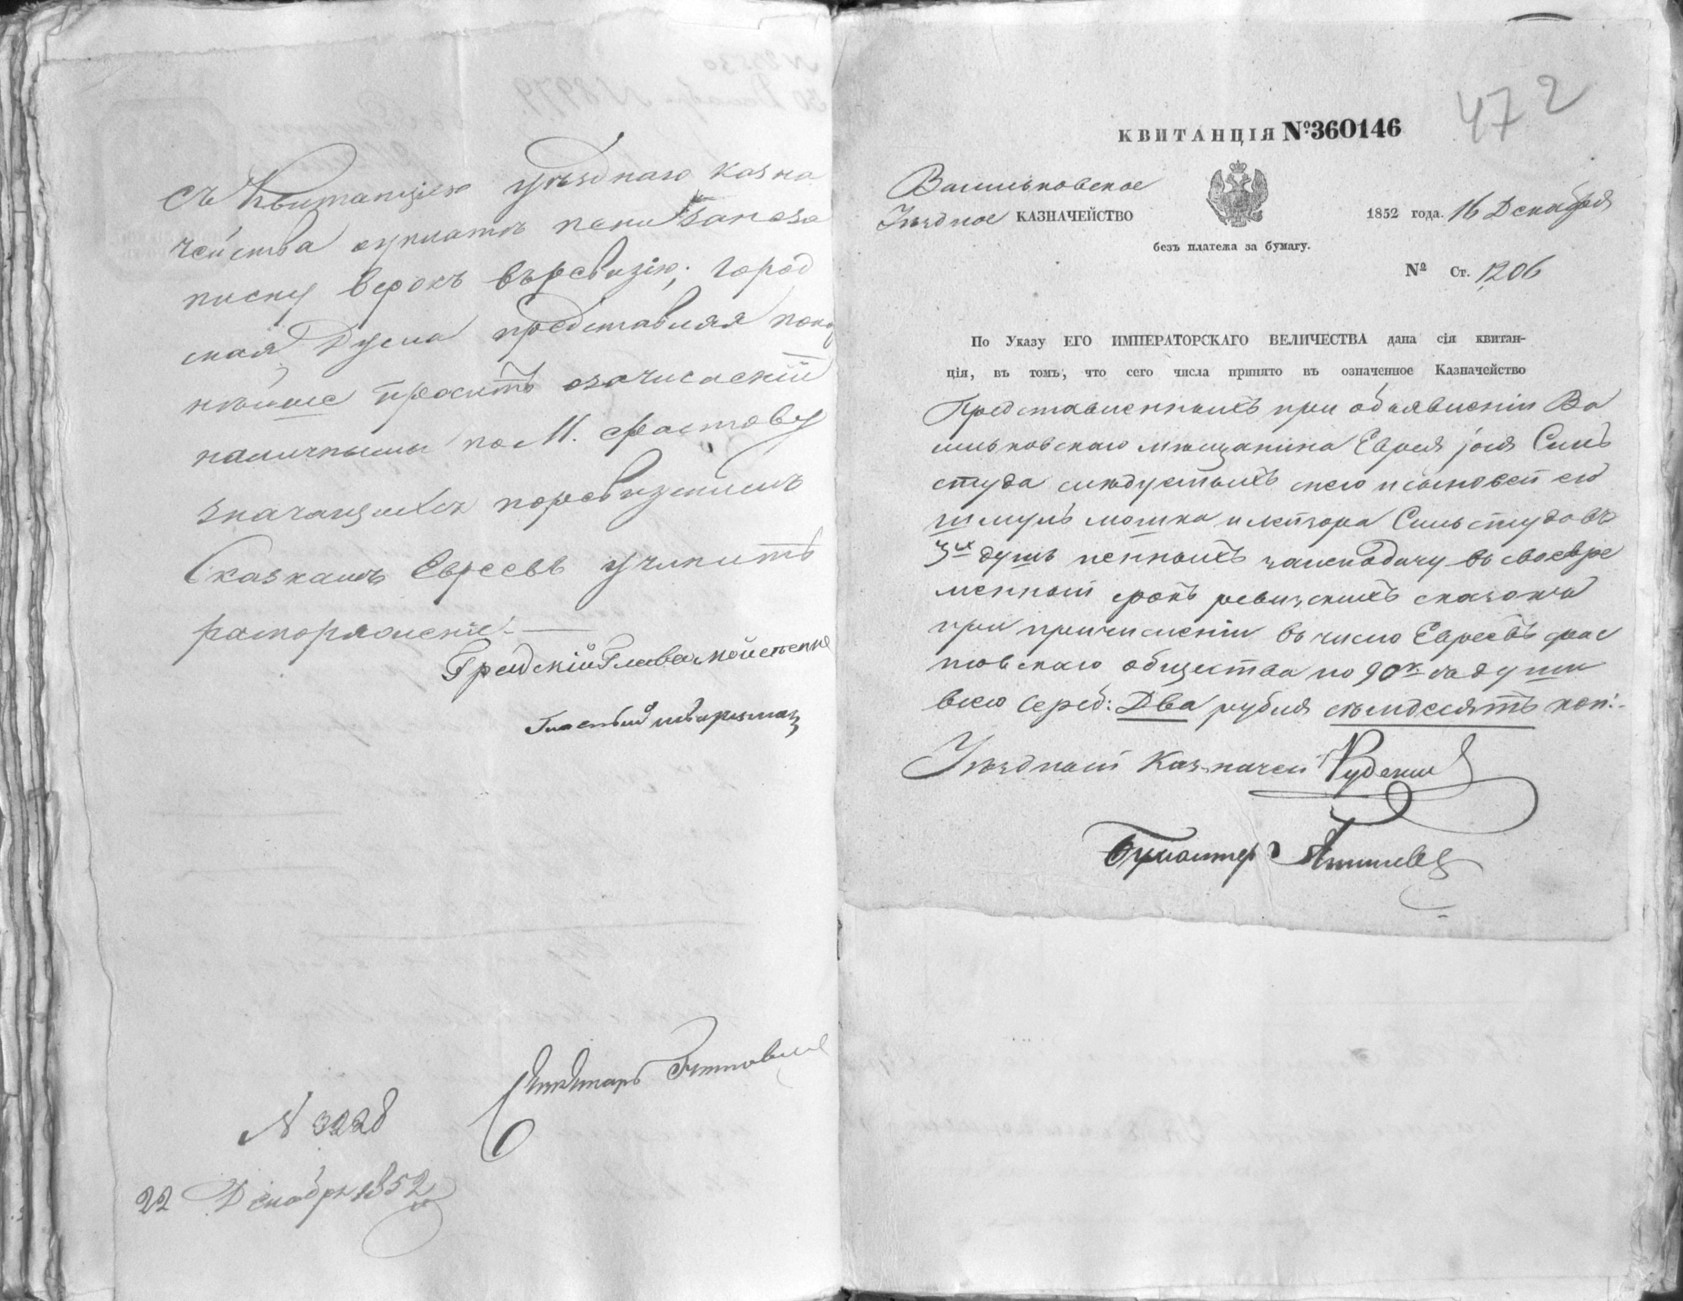 съ Квитанціею уѣзднаго казна
чейства о уплатѣ пени за неза
писку въ срокъ въ ревизію; Город
ская Дума представляя поко
рнѣйше проситъ о зачисленіи
наличными по М. Фастову
значащихся по ревизскимъ
Сказкамъ Евреевъ учинить
распоряженіе.
Градскій Глава
Гласный
Секретарь
№ 3228
22 Декабря 1852
472
КВИТАНЦІЯ №360146
Васильковское
Уѣздное КАЗНАЧЕЙСТВО
1852 года. 16 Декабря
безъ платежа за бумагу.
№ Ст. 1206
По Указу ЕГО ИМПЕРАТОРСКАГО ВЕЛИЧЕСТВА дана сія квитан-
ція, въ томъ, что сего числа принято въ означенное Казначейство
Представленныхъ при объявленіи Ва
сильковскаго мѣщанина Еврея
слѣдуемыхъ съ него и сыновей его
Шмуль Мошка и
3хъ душъ пенныхъ за неподачу въ своевре
менный срокъ ревизскихъ сказокъ
при причисленіи въ число Евреевъ фас
товскаго общества по 90 к. за души
всего сереб: Два рубля семдесятъ коп:
Уѣздный Казначей
Бухгалтер